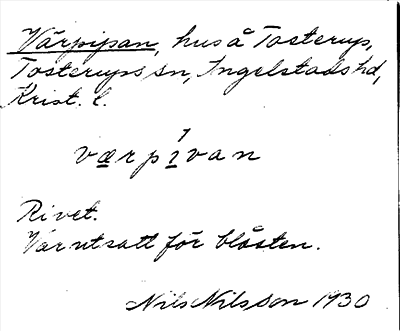 Värpipan, hus å Tosterup,
Tosterups sn, Ingelstads hd,
Krist. l.
värpivan
Rivet.
Var utsatt för blåsten.
Nils Nilsson 1930